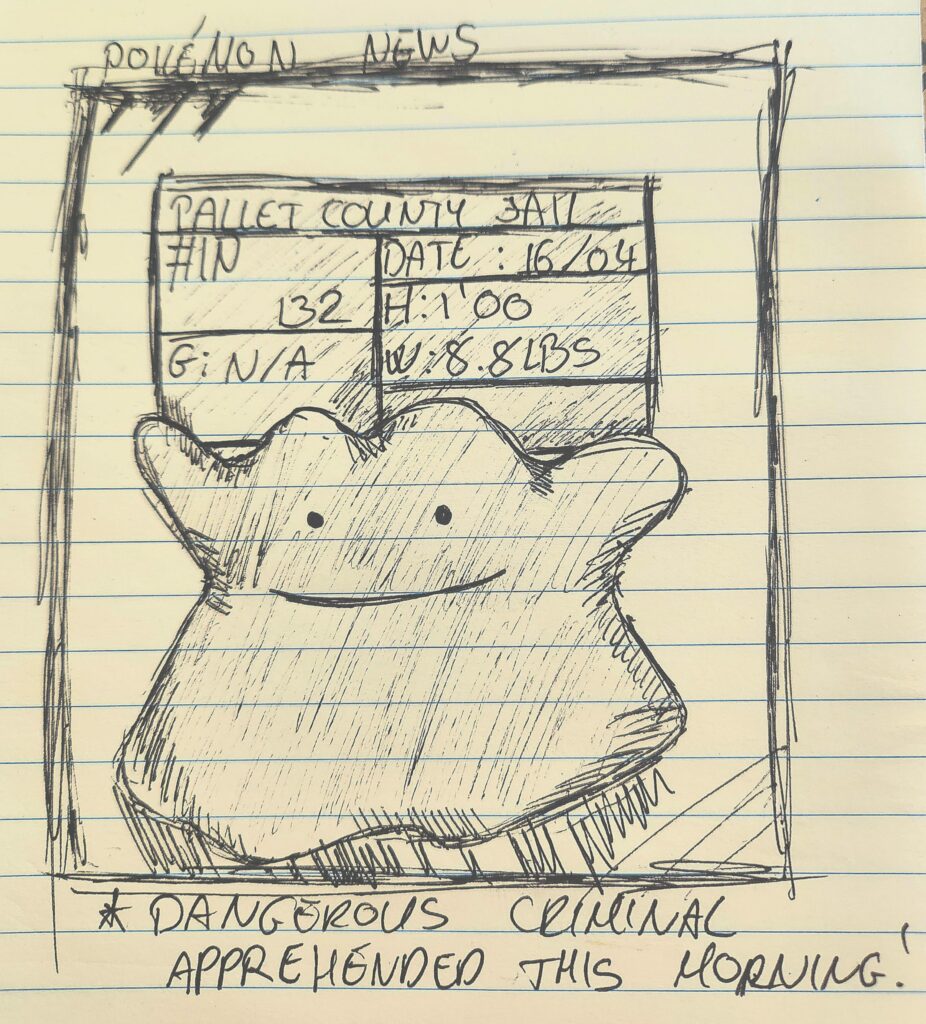 POKÉMON NEWS
PALLET COUNTY JAIL
#IN
132
G: N/A
DATE : 16/04
H:1'00
W:8.8LBS
* DANGEROUS CRIMINAL
APPREHENDED THIS MORNING!